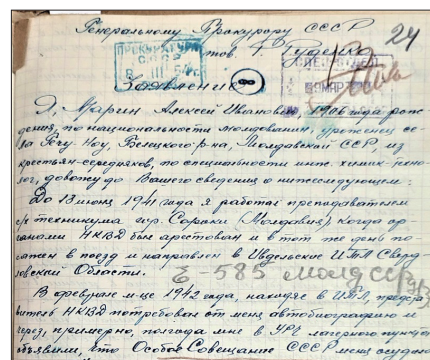 Генеральному Прокурору СССР
24
тов. Р. Руденко
ПРОКУРАТУРА
СССР
III 54 г.
8
СПЕЦОТДЕЛ
МАР
Заявление
Я, Марин Алексей Иванович, 1906 года рож-
дения, по национальности молдованин, уроженец се-
ла Гечу Ноу, Бельцкого р-на, Молдавской ССР, из
крестьян-середняков, по специальности инж. химик-техно-
лог, довожу до Вашего сведения о нижеследующем:
До 13 июня 1941 года я работал преподавателем
техникума гор. Сороки (Молдавия), когда ор-
ганами НКВД был арестован и в тот же день по-
сажен в поезд и направлен в Ивдельские ИТЛ Сверд-
ловской Области.
585 Молд ССР
В феврале м-це 1942 года, находясь в ИТЛ, предста-
витель НКВД потребовал от меня автобиографию и
через, примерно, полгода мне в УРЧ лагерного пункта
объявили, что Особое Совещание СССР меня осудило